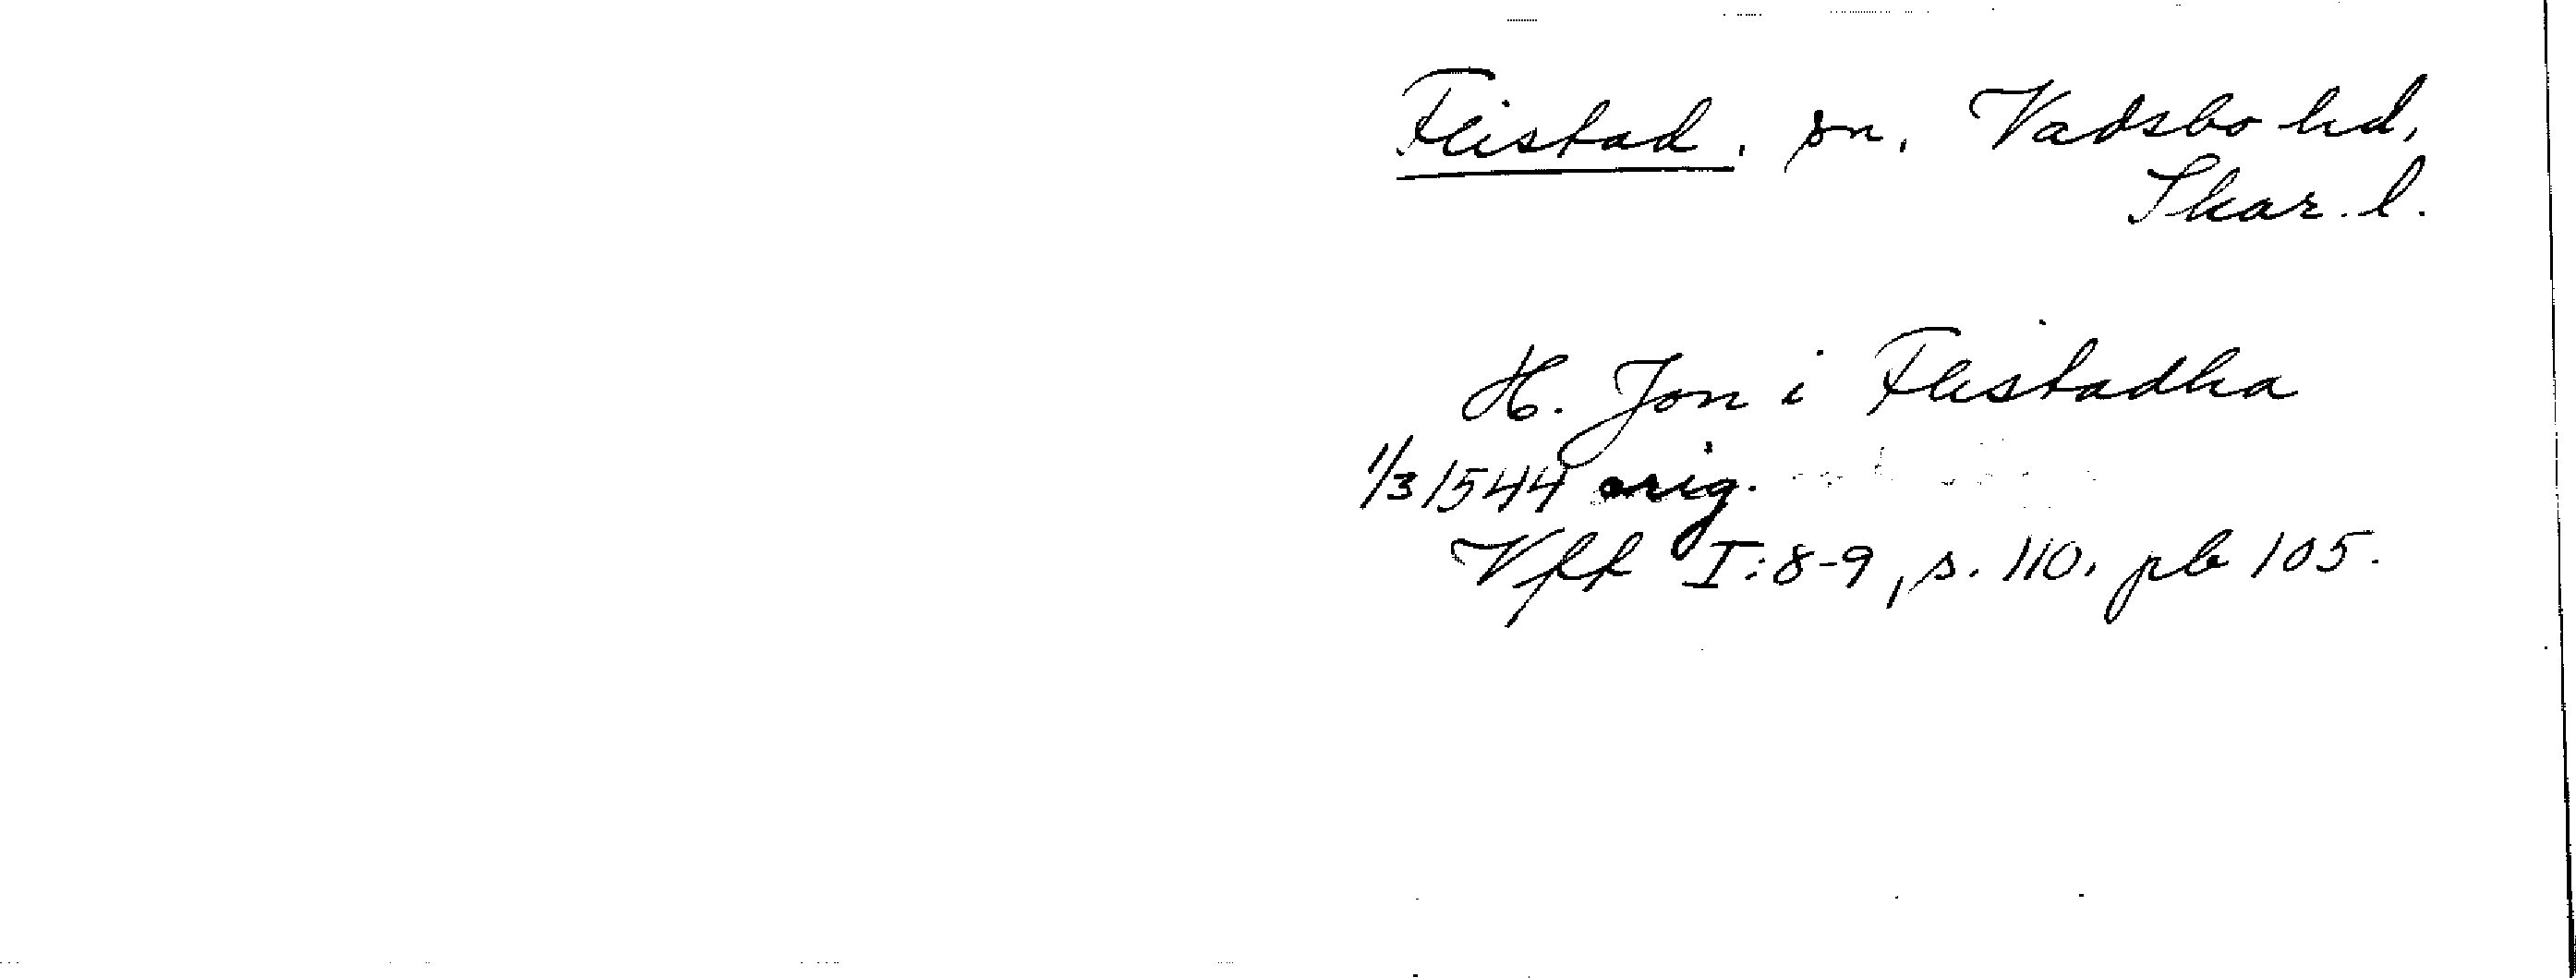 Flistad, sn, Vadsbo hd,
Skar. l.
H. Jon i Flistadha
1/3 1544 orig.
Vff I:8-9, s. 110. pb 105.